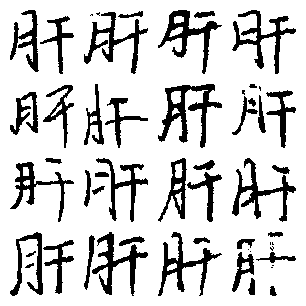 肝肝肝肝
肝肝肝肝
肝肝肝肝
肝肝肝肝